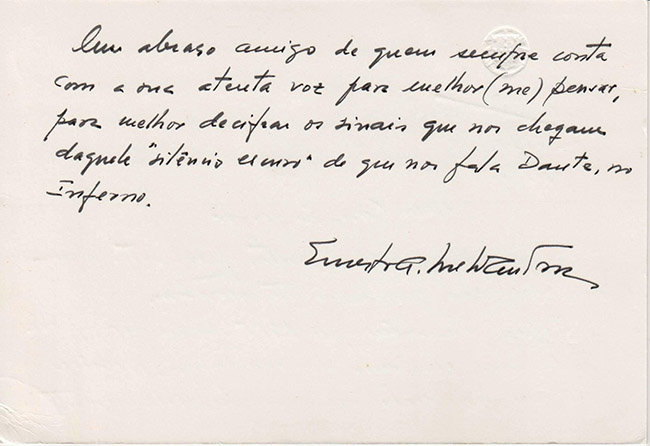 Um abraço amigo de quem sempre conta
com a sua atenta voz para melhor (me) pensar,
para melhor decifrar os sinais que nos chegam
daquele "silêncio escuro" de que nos fala Dante, no
Inferno.